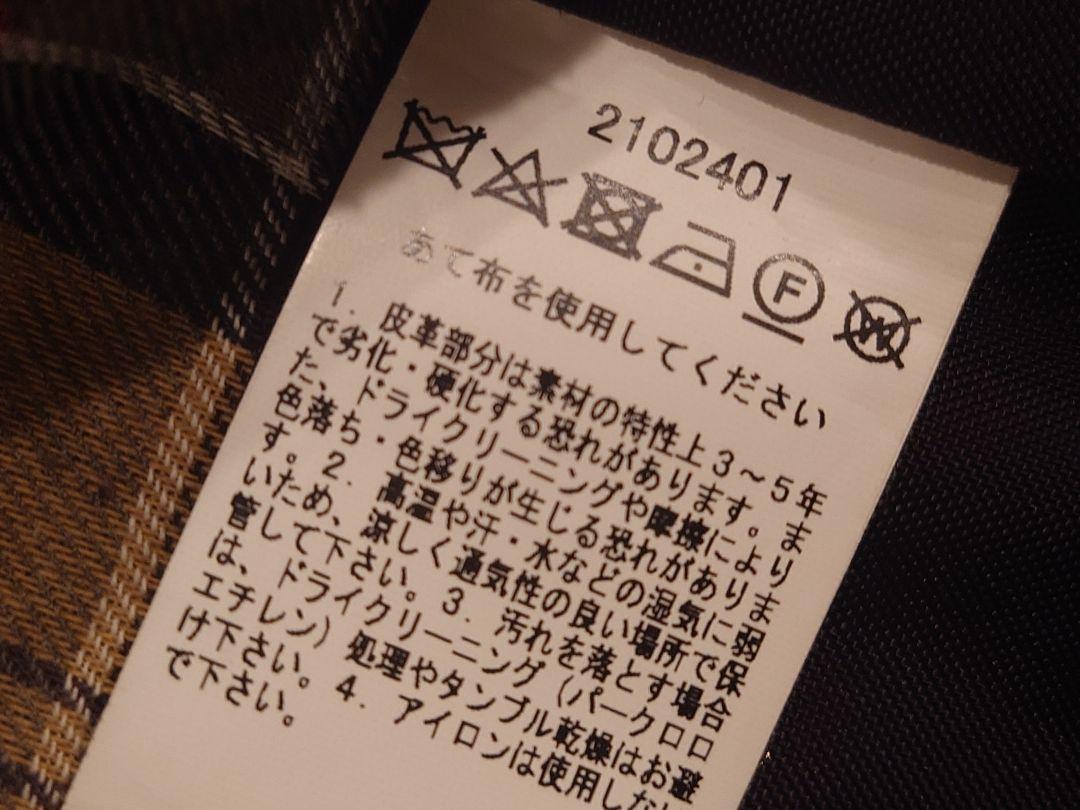 2102401
F W
あて布を使用してください
1. 皮革部分は素材の特性上3～5年
で劣化・硬化する恐れがあります。ま
た、ドライクリーニングや摩擦により
色落ち・色移りが生じる恐れがありま
す。2. 高温や汗・水などの湿気に弱
いため、涼しく通気性の良い場所で保
管して下さい。3. 汚れを落とす場合
は、ドライクリーニング（パークロロ
エチレン）処理やタンブル乾燥はお避
け下さい。4. アイロンは使用しない
で下さい。